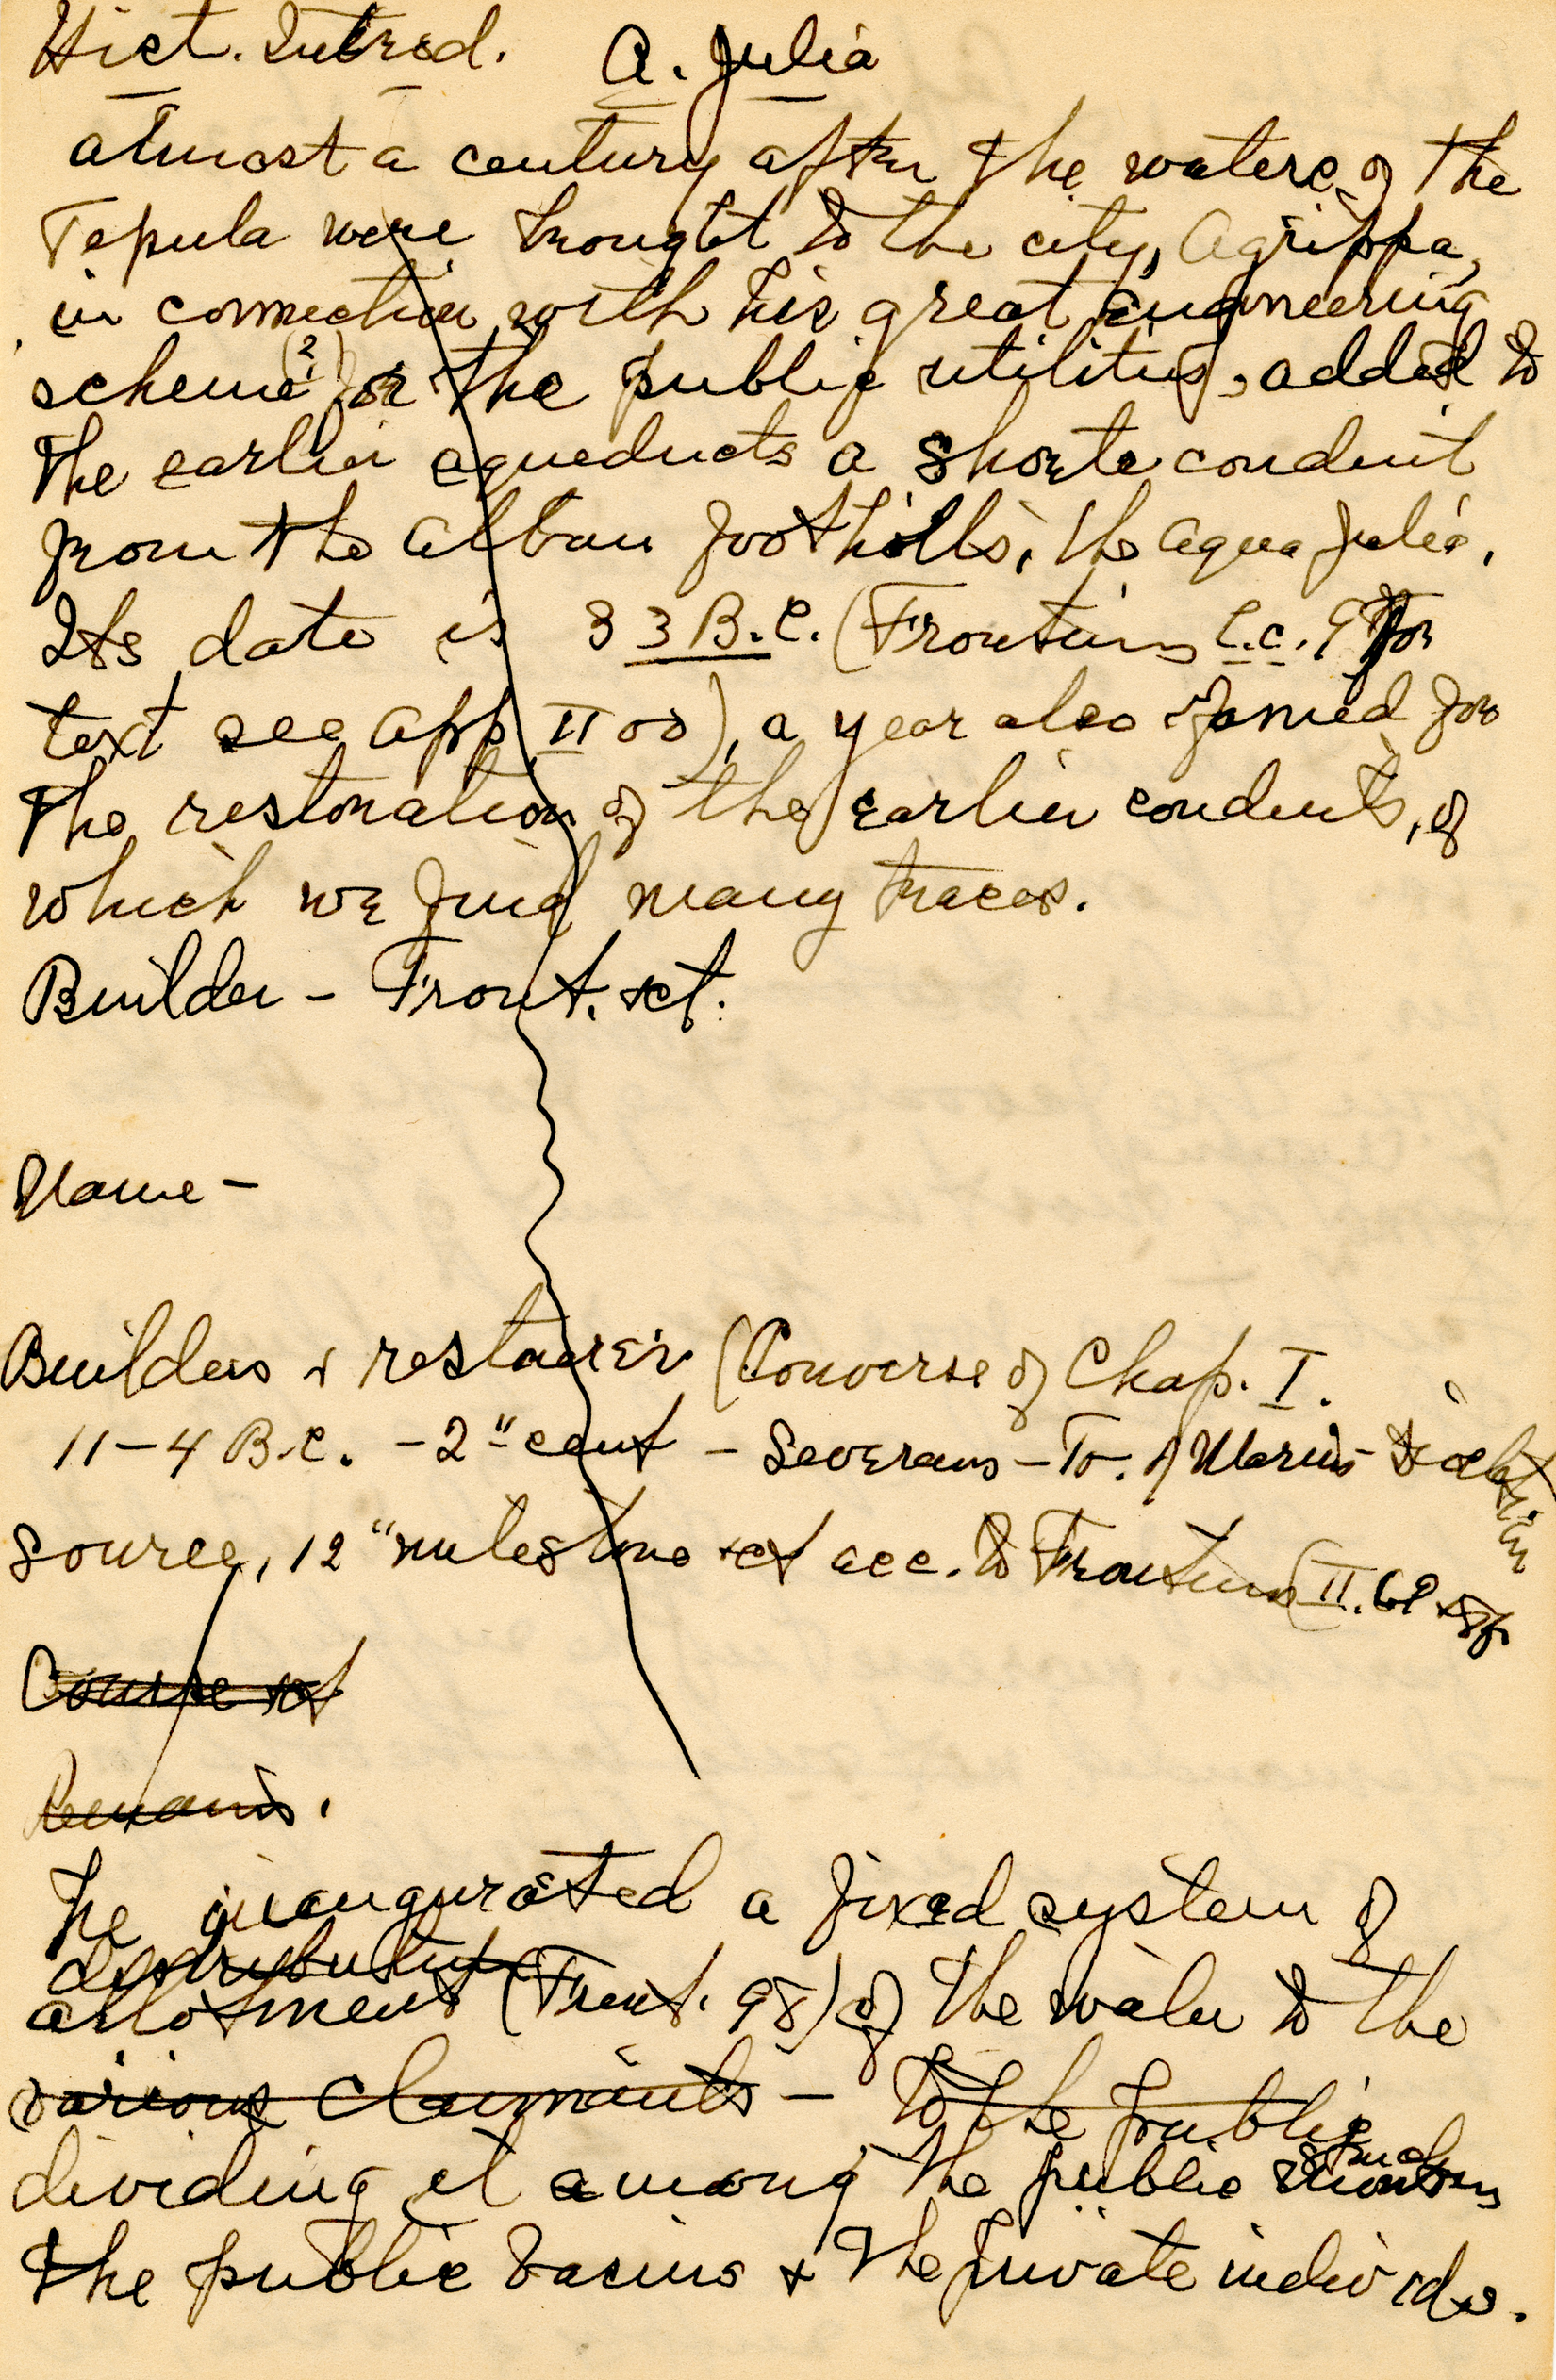 Hist. Introd. A. Julia
almost a century after the waters of the
Tepula were brought to the city, Agrippa,
in connection with his great engineering
scheme (2) for the public utilities, added to
the earlier aqueducts a shorter conduit
from the Alban foothills, the Aqua Julia.
Its date is 33 B.C. (Frontinus l.c. 9 for
text see App II 00), a year also famed for
the restoration of the earlier conduits, of
which we find many traces.
Builder - Front. et.
Name -
Builders + restorers (Converse of Chap. I.
11-4 B.C. - 2" cent - Severans - To. of Marius -
Source, 12" milestone et acc. to Frontinus (II. 68
Course et
Remains.
He inaugurated a fixed system of
distribution
allotment (Front. 98) of the water to the
various claimants - to the public
dividing it among the public
the public basins + the private individs.